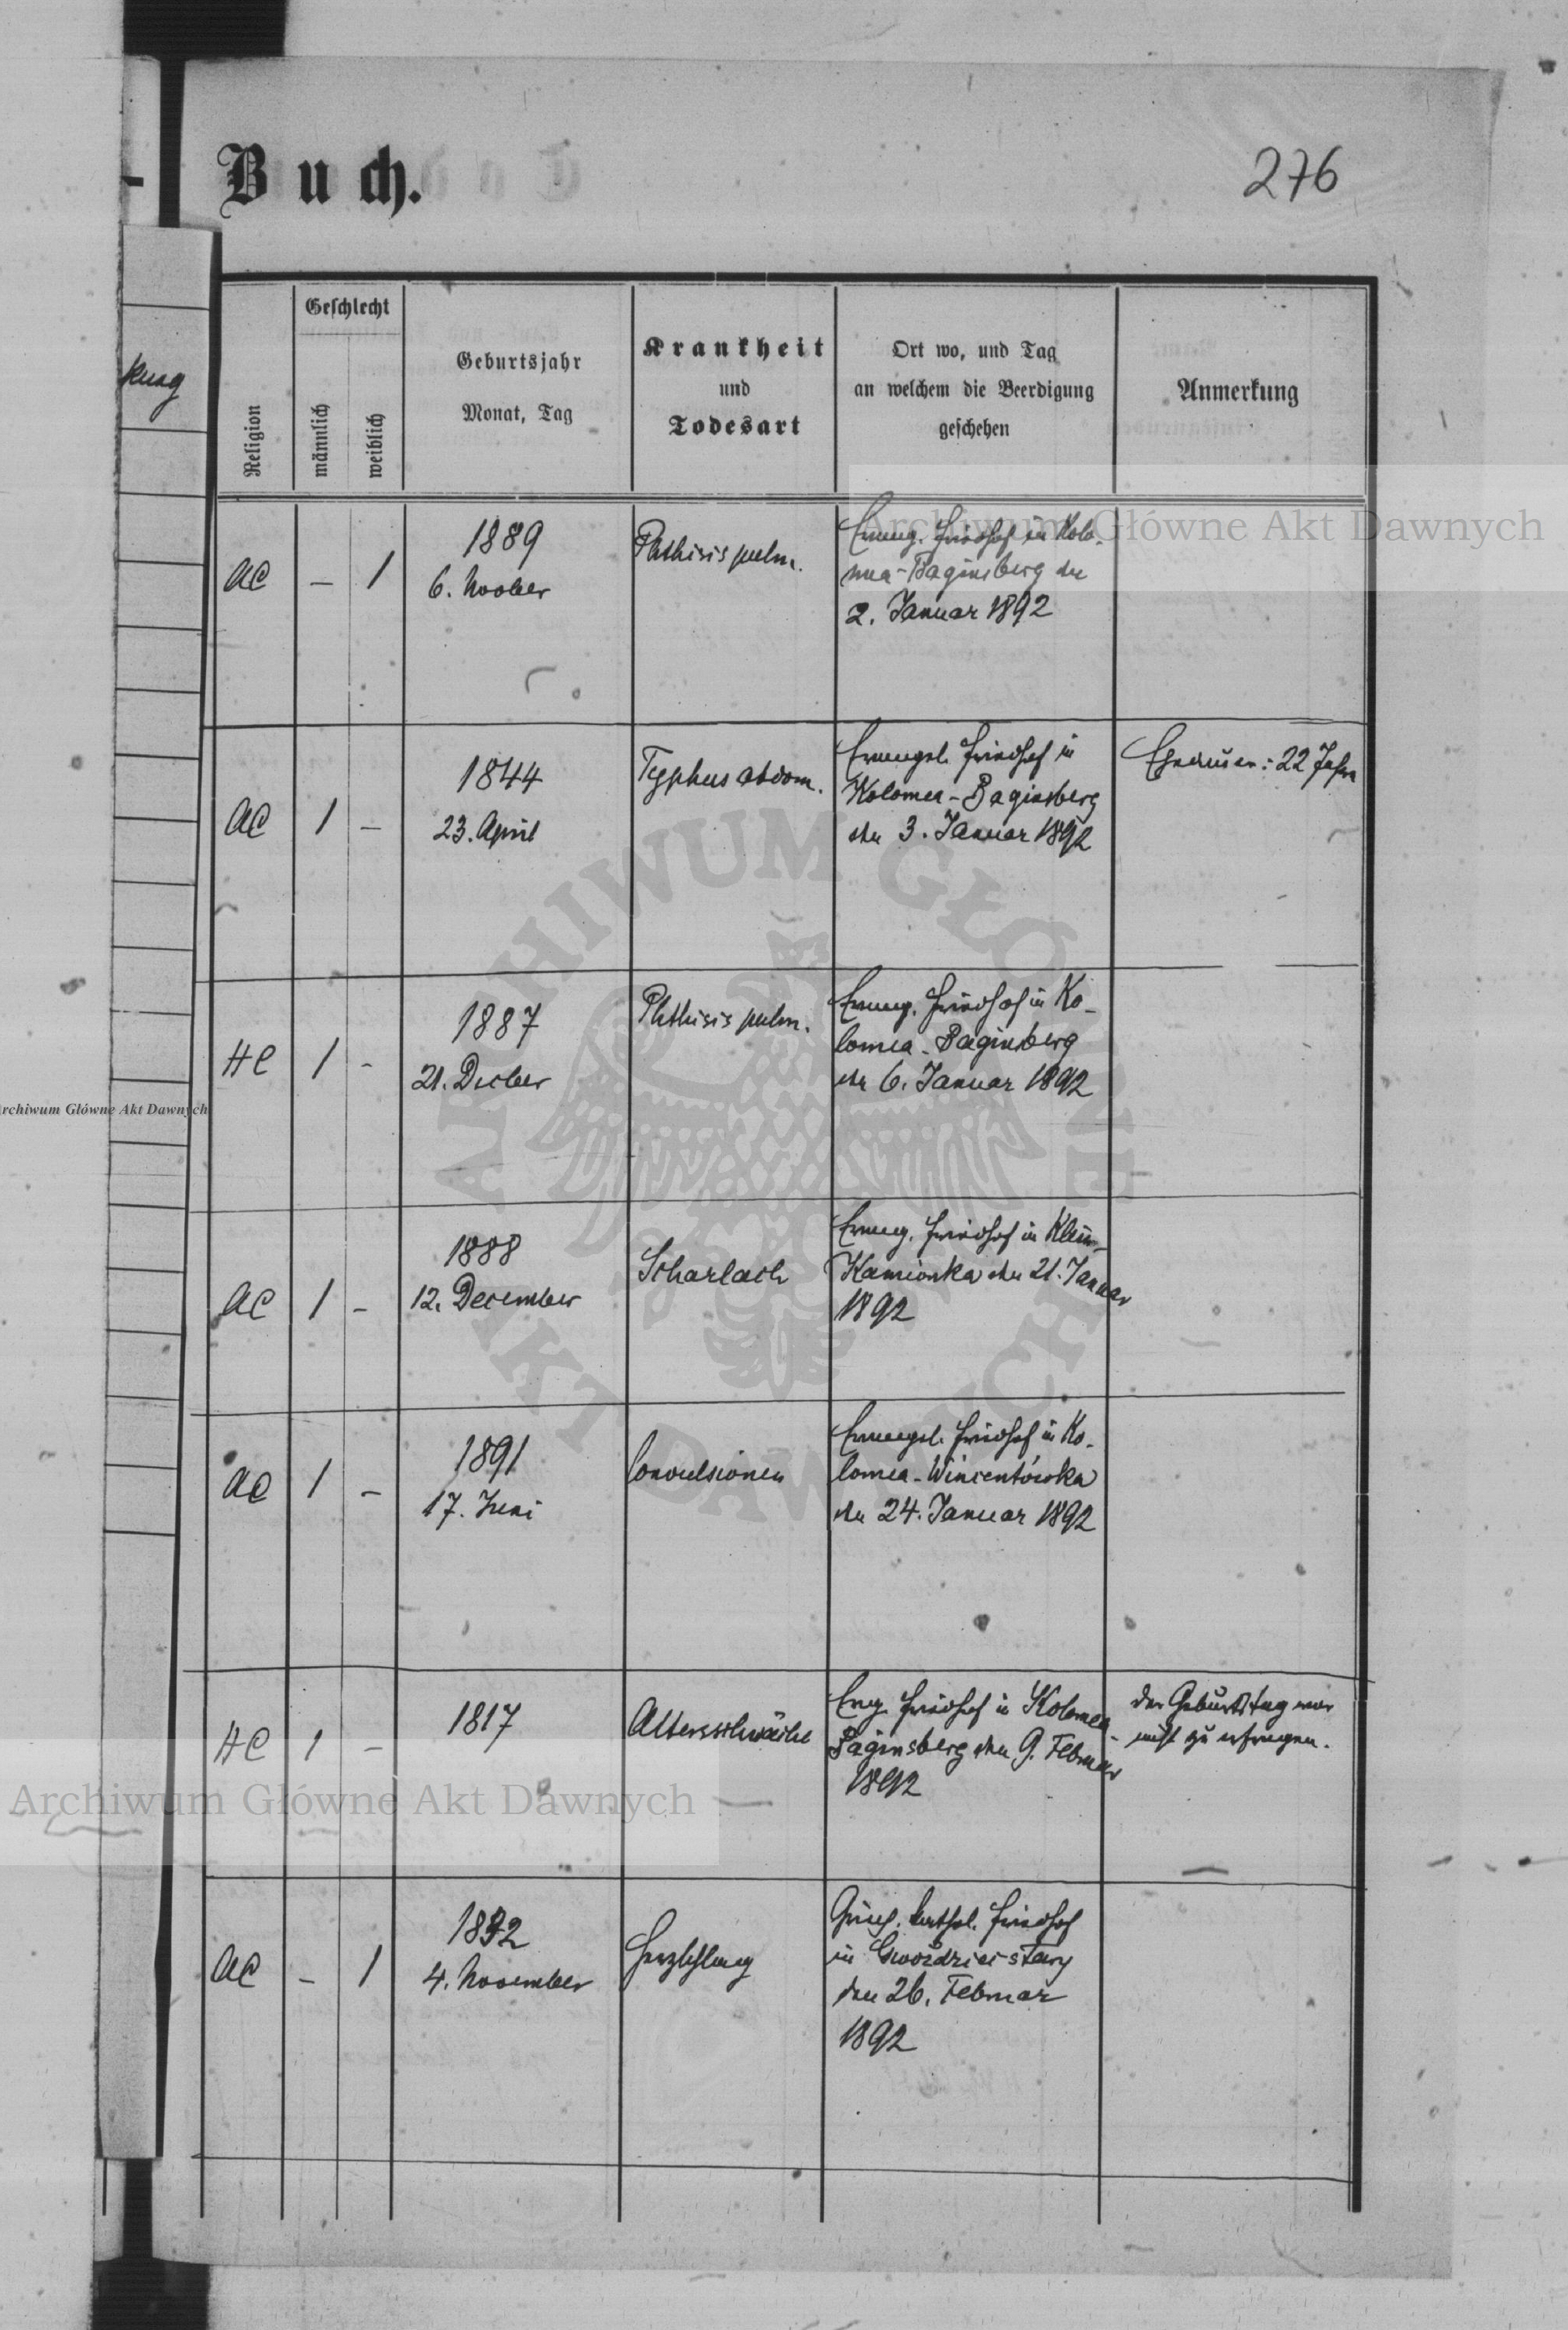 Buch.
276
kung
Religion
Geschlecht
männlich
weiblich
Geburtsjahr
Monat, Tag
Krankheit
und
Todesart
Ort wo, und Tag
an welchem die Beerdigung
geschehen
Anmerkung
AC – 1
1889
6. Novber
Phthisis pulm.
Evang. Friedhof in Kolo-
mea-Baginsberg den
2. Januar 1892
AC 1 –
1844
23. April
Typhus abdom.
Evangel. Friedhof in
Kolomea-Baginsberg
den 3. Januar 1892
Ehedauer: 22 Jahre
HC 1 -
1887
21. Decber
Phthisis pulm.
Evang. Friedhof in Ko-
lomea-Baginsberg
den 6. Januar 1892
AC 1 –
1888
12. December
Scharlach
Evang. Friedhof in Klein-
Kamionka den 21. Januar
1892
AC 1 –
1891
17. Juni
Convulsionen
Evangel. Friedhof in Ko-
lomea-Wincentówka
den 24. Januar 1892
HC 1 –
1817
Altersschwäche
Evg. Friedhof in Kolomea-
Baginsberg den 9. Februar
1892
Der Geburtstag war
nicht zu erfragen.
AC – 1
4. November
Griech. kathol. Friedhof
in Gwoździec stary
den 26. Februar
1892
Archiwum Główne Akt Dawnych
Archiwum Główne Akt Dawnych
Archiwum Główne Akt Dawnych
ARCHIWUM GŁÓWNE
AKT DAWNYCH